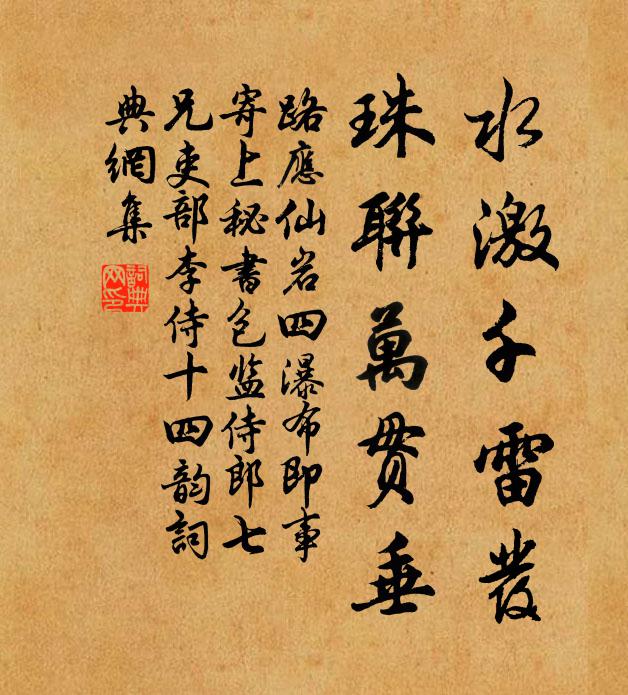 水激千雷發
珠聯萬贯垂
路應仙岩四瀑布即事
寄上秘書包监侍郎七
兄吏部李侍十四韵詞
典網集
詞典網印